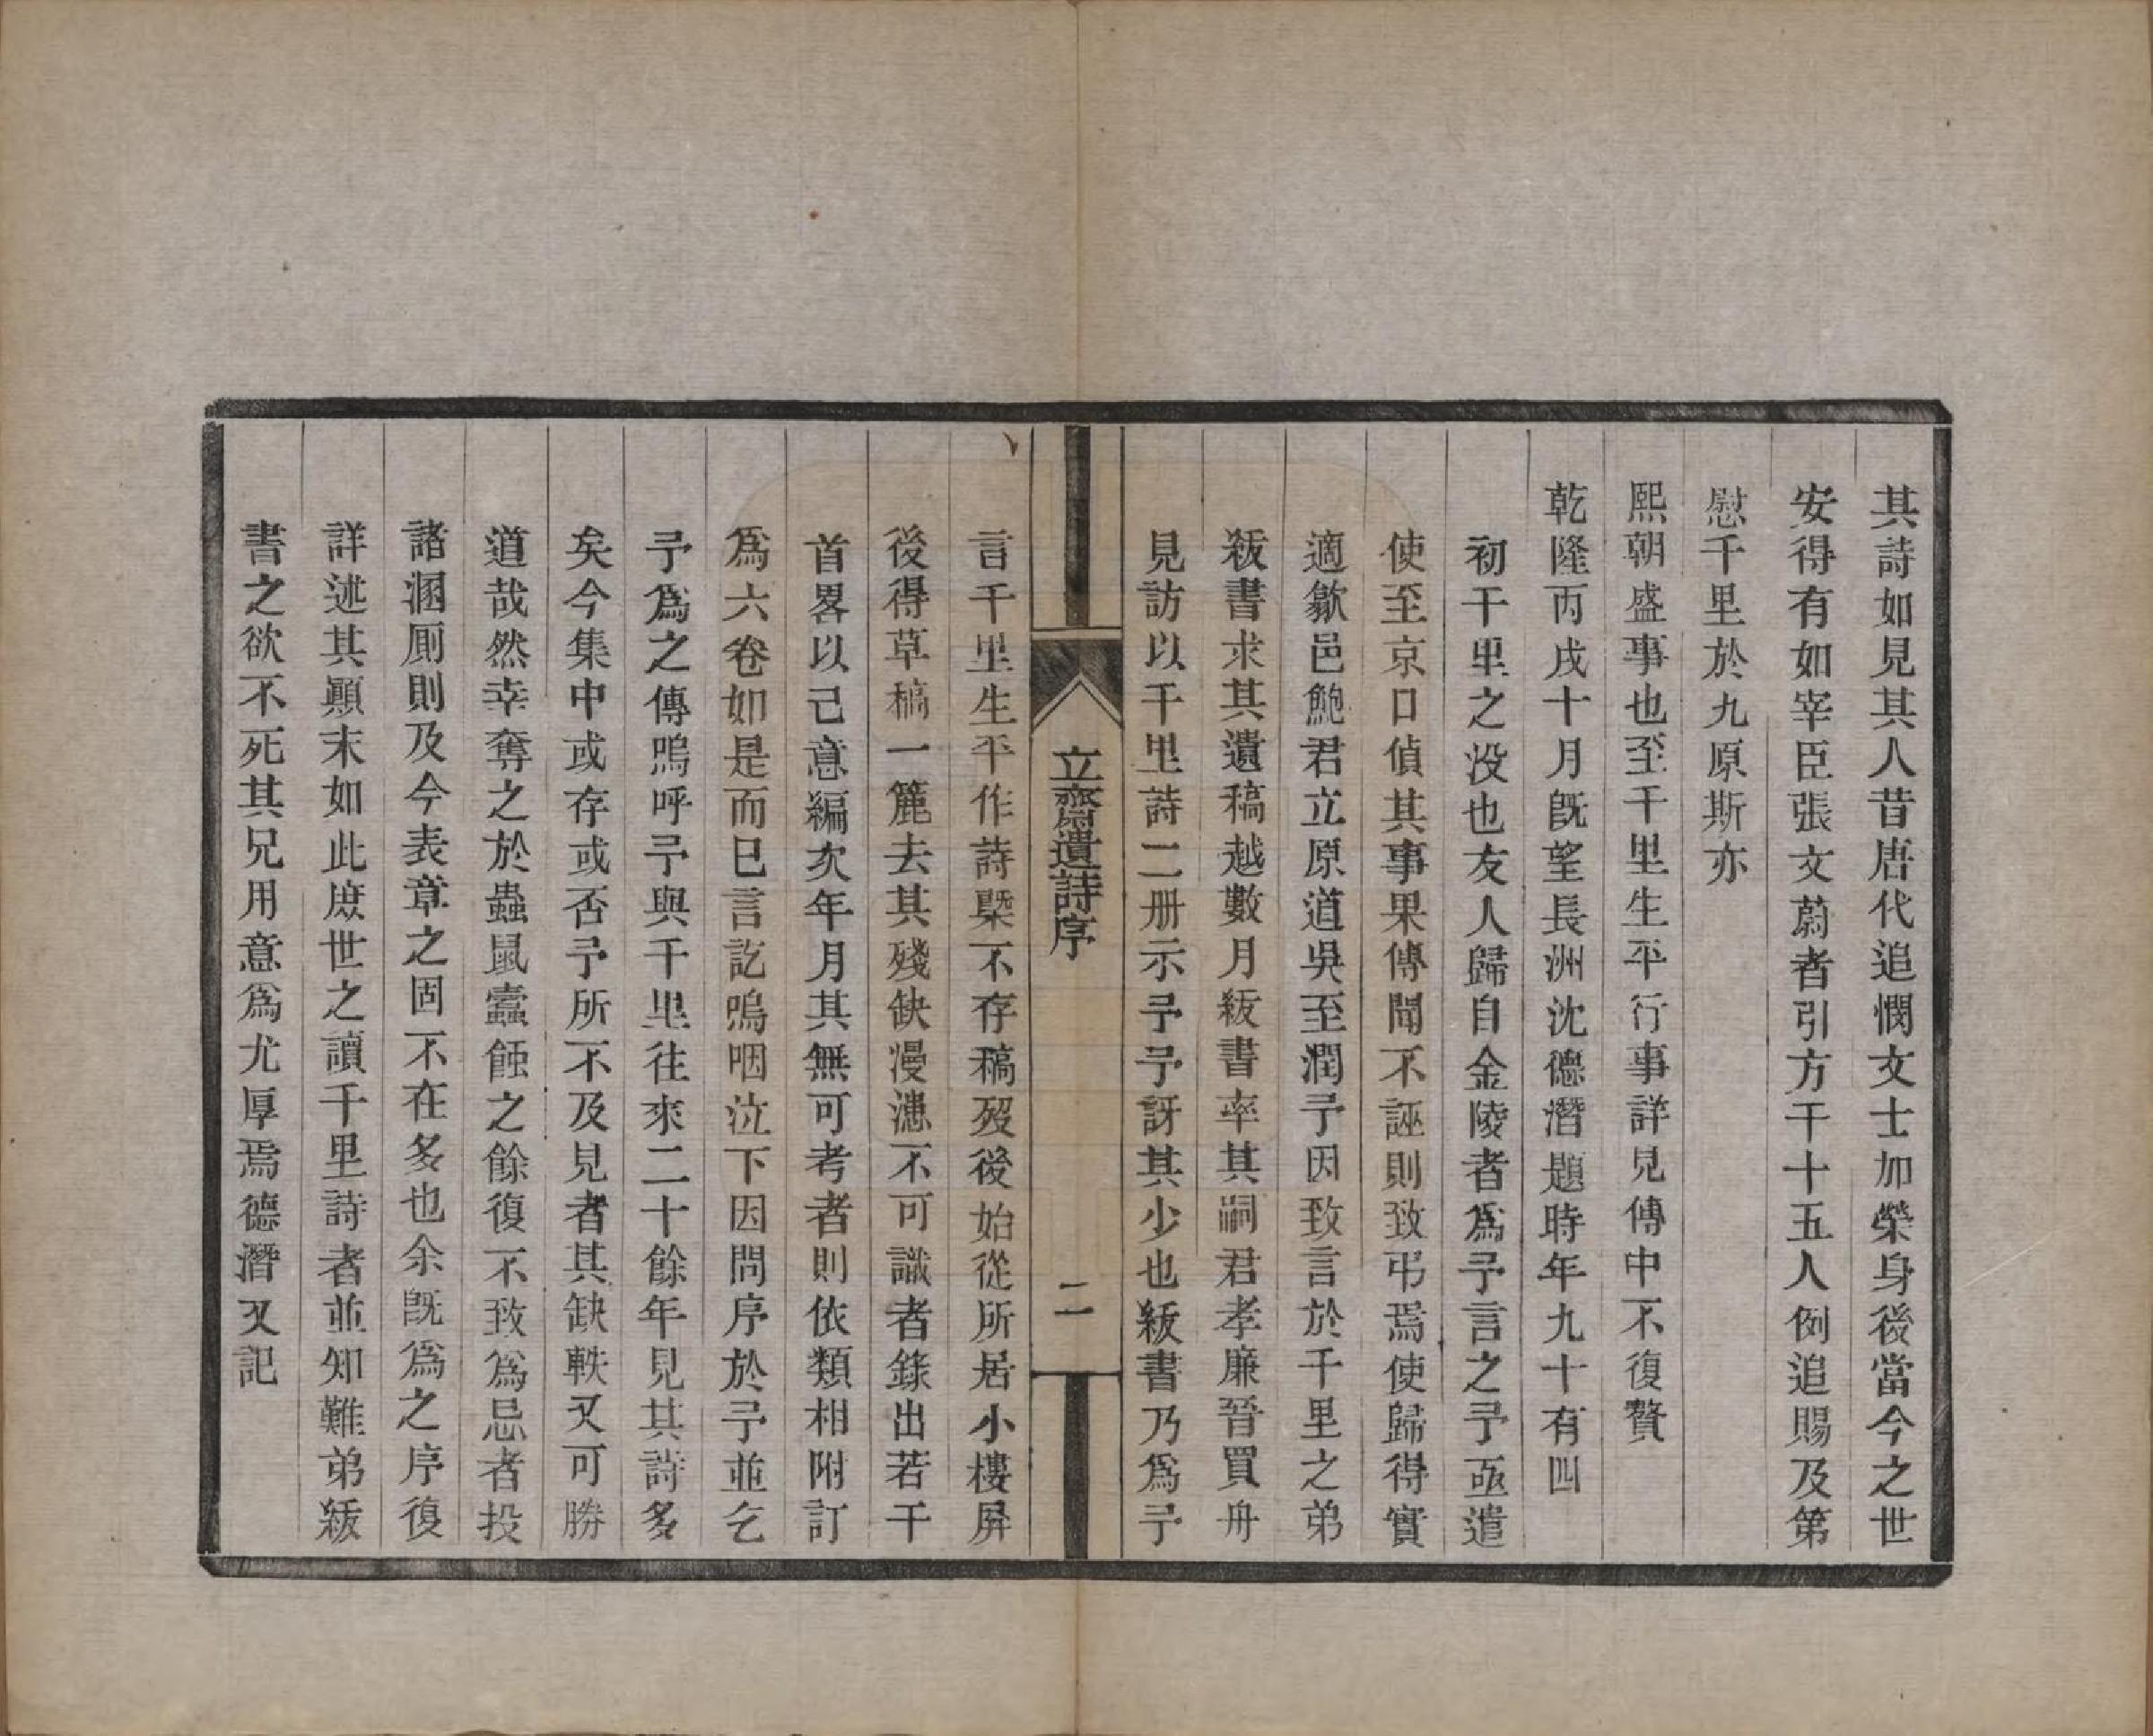 其詩如見其人昔唐代追憫文士加榮身後當今之世
安得有如宰臣張文蔚者引方干十五人例追賜及第
慰千里於九原斯亦
熙朝盛事也至千里生平行事詳見傳中不復贅
乾隆丙戌十月既望長洲沈德潛題時年九十有四
初千里之没也友人歸自金陵者爲予言之予亟遣
使至京口偵其事果傳聞不誣則致弔焉使歸得實
適歙邑鮑君立原道吳至潤予因致言於千里之弟
紱書求其遺稿越數月紱書率其嗣君孝廉晉買舟
見訪以千里詩二册示予予訝其少也紱書乃爲予
立齋遺詩序
二
言千里生平作詩槩不存稿歿後始從所居小樓屏
後得草稿一簏去其殘缺漫漶不可識者錄出若干
首畧以己意編次年月其無可考者則依類相附訂
爲六卷如是而已言訖嗚咽泣下因問序於予並乞
予爲之傳嗚呼予與千里往來二十餘年見其詩多
矣今集中或存或否予所不及見者其缺軼又可勝
道哉然幸奪之於蟲鼠蠹蝕之餘復不致爲忌者投
諸溷厠則及今表章之固不在多也余既爲之序復
詳述其顛末如此庶世之讀千里詩者並知難弟紱
書之欲不死其兄用意爲尤厚焉德潛又記